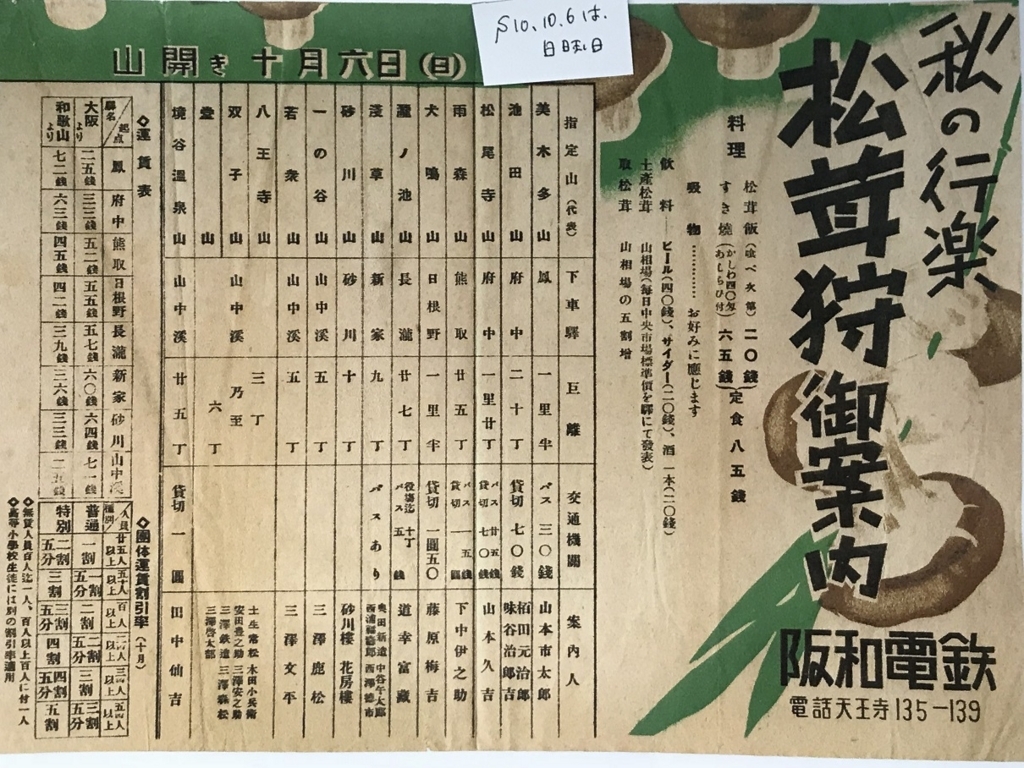 S10.10.6は、
日曜日
私の行楽
松茸狩御案内
阪和電鉄
電話天王寺135－139
山開き十月六日(日)
料理
松茸飯(食べ次第)二〇錢
すき燒(かしわ四〇匁あしらひ付)六五錢
定食八五錢
吸物…………お好みに應じます
飲料 ビール(四〇錢)、サイダー(二〇錢)、酒一本(二〇錢)
土產松茸 山相場(每日中央市場標準價を驛にて發表)
取松茸 山相場の五割增
指定山(代表) 下車驛 巨離 交通機關 案内人
美木多山 鳳 一里半 バス三〇錢 山本市太郎
池田山 府中 二十丁 貸切七〇錢 栢田元治郎 味谷治郎吉
松尾寺山 府中 一里廿丁 バス廿五錢 貸切七〇錢 山本久吉
雨森山 熊取 廿五丁 バス五錢 貸切一圓 下中伊之助
犬鳴山 日根野 一里半 貸切一圓五〇 藤原梅吉
瀧ノ池山 長瀧 廿七丁 役場迄十丁 バス五錢 道幸富藏
淺草山 新家 九丁 バスあり 奥田新造 中谷午太郎 西浦福松郎 西澤德市
砂川山 砂川 十丁 砂川樓 花房樓
一の谷山 山中溪 五丁 三澤鹿松
若衆山 山中溪 五丁 三澤文平
八王寺山
双子山
堂山
山中溪 三丁乃至六丁 土生常松 木田小兵衛 安田豊之助 三澤安之助 三澤鉄造 三澤啓太郎
境谷溫泉山 山中溪 廿五丁 貸切一圓 田中仙吉
◇運賃表
驛名 起点 鳳 府中 熊取 日根野 長瀧 新家 砂川 山中溪
大阪より 二五錢 三三錢 五二錢 五五錢 五七錢 六〇錢 六四錢 七一錢
和歌山より 七二錢 六三錢 四五錢 四二錢 三九錢 三六錢 三三錢 二五錢
◇團体運賃割引率(十月)
人員 種別 廿五人以上 五十人以上 百人以上 二百人以上 三百人以上 五百人以上
普通 一割 一割五分 二割 二割五分 三割 三割五分
特別 二割五分 三割 三割五分 四割 四割五分 五割
◆無賃人員百人迄一人、百人以上百人に付一人
◆高等小學校生徒には別の割引率適用